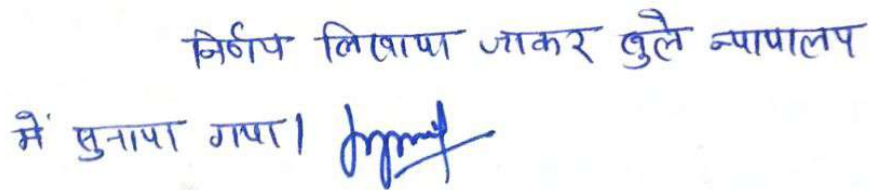 निर्णय लिखाया जाकर खुले न्यायालय
में सुनाया गया।